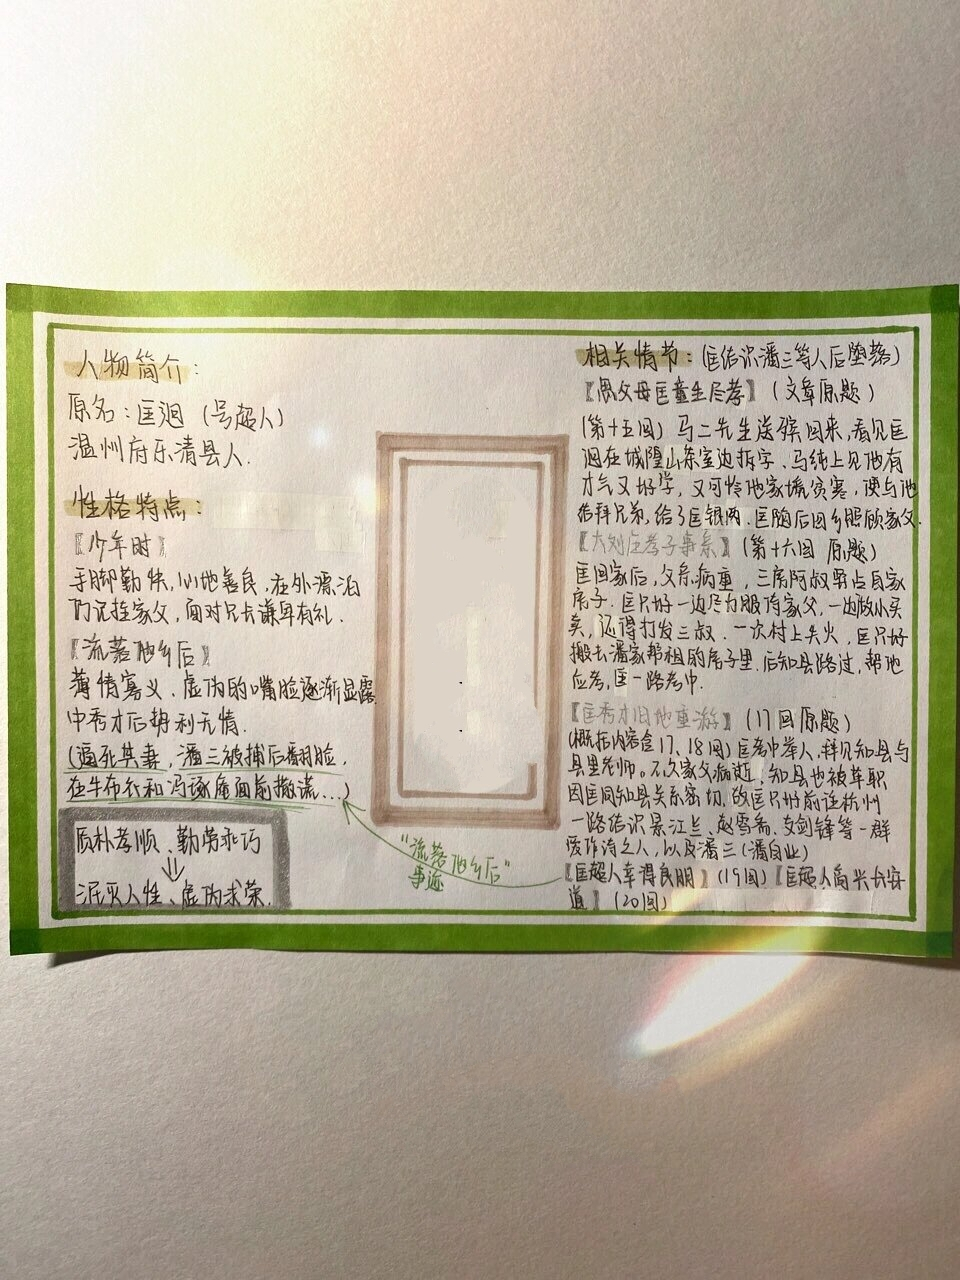 人物简介：
原名：匡迥（号超人）
温州府乐清县人.
性格特点：
〖少年时〗
手脚勤快，心地善良，在外漂泊
仍记挂家父，面对兄长谦卑有礼.
〖流落他乡后〗
薄情寡义、虚伪的嘴脸逐渐显露
中秀才后势利无情.
（逼死其妻，潘三被捕后翻脸，
在牛布衣和冯琢庵面前撒谎...）
质朴孝顺、勤劳乖巧
泯灭人性、虚伪求荣.
"流落他乡后"
事迹
相关情节：（匡结识潘三等人后堕落）
〖思父母匡童生尽孝〗（文章原题）
（第十五回）马二先生送殡回来，看见匡
迥在城隍山茶室边拆字、马纯上见他有
才气又好学，又可怜他家境贫寒，便与他
结拜兄弟，给了匡银两.匡随后回乡照顾家父.
〖大刘庄孝子事亲〗（第十六回 原题）
匡回家后，父亲病重，三房阿叔霸占自家
房子.匡只好一边尽力服侍家父，一边做小买
卖，还得打发三叔.一次村上失火，匡只好
搬去潘家帮租的房子里.后知县路过，帮他
应考，匡一路考中.
〖匡秀才旧地重游〗（17回原题）
（概括内容含17、18回）匡考中举人，拜见知县与
县里老师。不久家父病逝、知县也被革职
因匡同知县关系密切，故匡只好前往杭州
一路结识景江兰、赵雪斋、支剑锋等一群
爱作诗之人，以及潘三（潘自业）
〖匡超人幸得良朋〗（19回）〖匡超人高兴长安
道〗（20回）